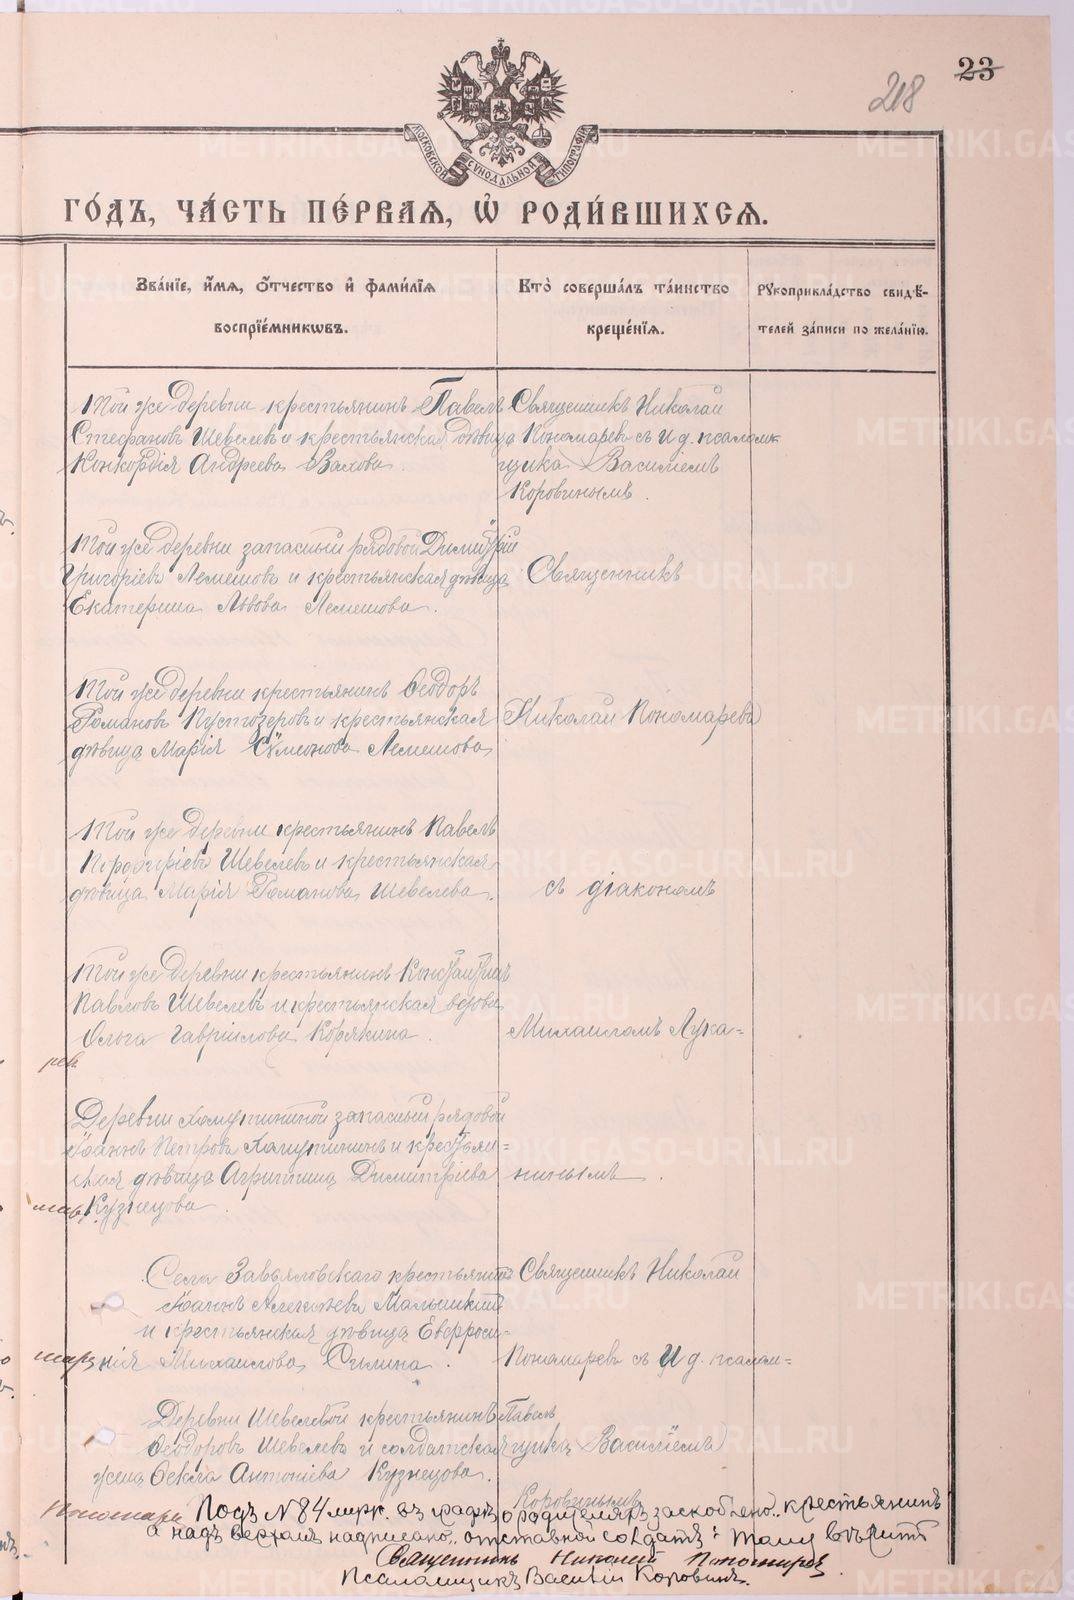 218 23
МОСКОВСКОЙ СѴНОДАЛЬНОЙ ТИПОГРАФІИ
ГО́ДЪ, ЧА́СТЬ ПЕ́РВАЯ, Ѽ РОДИ́ВШИХСЯ.
Зва́нїе, и́мя, о́тчество и фами́лїя
воспрїе́мниковъ.
Кто̀ соверша́лъ та́инство
креще́нїя.
Рꙋкоприкла́дство свидѣ́-
телей за́писи по жела́нїю.
Той же деревни крестьянинъ Павелъ
Стефановъ Шевелевъ и крестьянская дѣвица
Конкордія Андреева Вахова.
Священникъ Николай
Пономаревъ съ и д. псаломщика Василіемъ
Коровинымъ.
Той же деревни запасный рядовой Димитрій
Григоріевъ Лемешовъ и крестьянская дѣвица
Екатерина Львова Лемешова.
Священникъ
Той же деревни крестьянинъ Ѳеодоръ
Романовъ Пустозеровъ и крестьянская
дѣвица Марія Сѵмеонова Лемешова
Николай Пономаревъ
Той же деревни крестьянинъ Павелъ
Порфиріевъ Шевелевъ и крестьянская
дѣвица Марія Романова Шевелева.
съ діакономъ
Той же деревни крестьянинъ Константинъ
Павловъ Шевелевъ и крестьянская вдова
Ольга Гавріилова Корякина.
Михаиломъ Лука=
Деревни Хомутининой запасный рядовой
Іоаннъ Петровъ Хомутининъ и крестьян=
ская дѣвица Агриппина Димитріева
Кузнецова.
нинымъ.
Села Завьяловскаго крестьянинъ
Іоаннъ Алексѣевъ Мальцкій
и крестьянская дѣвица Евфроси-
нія Михаилова Силина.
Священникъ Николай
Пономаревъ съ и д. псалом=
Деревни Шевелевой крестьянинъ Павелъ
Ѳеодоровъ Шевелевъ и солдатская
жена Ѳекла Антоніева Кузнецова.
щика Василіемъ
Коровинымъ
Подъ №84 муж. въ графѣ о родителяхъ заскоблено „крестьянинъ
а надъ верхомъ надписано „отставной солдатъ"; тому вѣрить
Священникъ Николай Пономаревъ
Псаломщикъ Василій Коровинъ.
METRIKI.GASO-URAL.RU